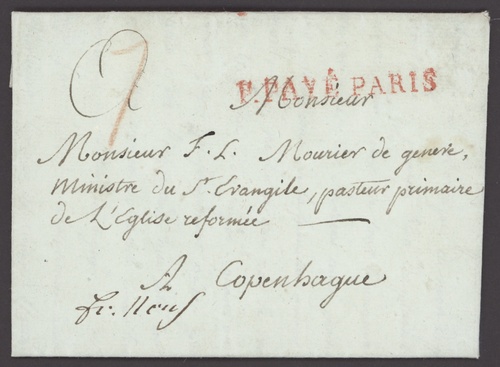 P.PAYÉ PARIS
Monsieur
Monsieur F. L. Mourier de geneve,
Ministre du St. Evangile, pasteur primaire
de L'Eglise reformée
A Copenhague
fr.